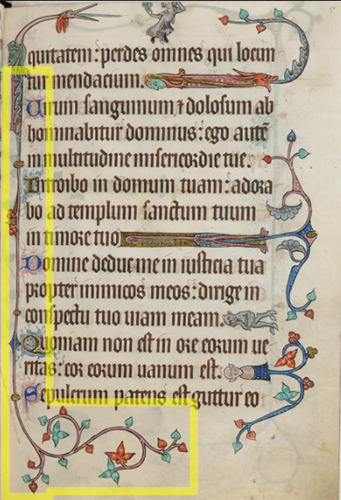 quitatem: perdes omnes qui locun
tur mendacium.
Uirum sanguinum ⁊ dolosum ab
hominabitur dominus: ego autē
in multitudine misericordie tue.
Introibo in domum tuam: adora
bo ad templum sanctum tuum
in timore tuo
Domine deduc me in iusticia tua
propter inimicos meos: dirige in
conspectu tuo uiam meam.
Quoniam non est in ore eorum ue
ritas: cor eorum uanum est.
Sepulcrum patens est guttur eo